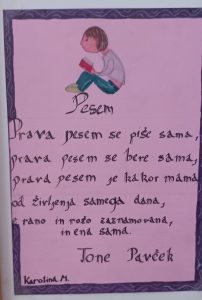 Pesem
Prava pesem se piše sama,
prava pesem se bere sama,
prava pesem je kakor mama
od življenja samega dana,
z rano in rožo zaznamovana,
in ena sama.
Tone Pavček
Karolina M.